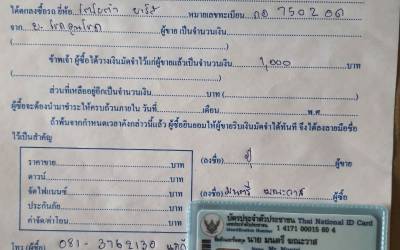 ได้ตกลงซื้อรถ ยี่ห้อ โตโยต้า ยาริส หมายเลขทะเบียน กอ 750206
จาก ผู้ขาย เป็นจำนวนเงิน
ข้าพเจ้า ผู้ซื้อได้วางเงินมัดจำไว้แก่ผู้ขายแล้วเป็นจำนวนเงิน 1,000
ส่วนที่เหลืออยู่อีกเป็นจำนวนเงิน บาท
ผู้ซื้อจะต้องนำมาชำระให้ครบถ้วนภายใน วันที่ เดือน พ.ศ.
ถ้าพ้นจากกำหนดเวลาดังกล่าวนี้แล้ว ผู้ซื้อยินยอมให้ผู้ขายริบเงินมัดจำได้ทันที จึงได้ลงลายมือชื่อ
ไว้เป็นสำคัญ
ราคาขาย บาท
ดาวน์ บาท
จัดไฟแนนซ์ บาท
ประกันภัย บาท
ค่าจัด/ค่าโอน บาท
(ลงชื่อ) ผู้ขาย
(ลงชื่อ) มนตรี ฆณะวาส ผู้ซื้อ
บัตรประจำตัวประชาชน Thai National ID Card
1 4171 00015 60 4
นาย มนตรี ฆณะวาส
โทร (ผู้ซื้อ) 081-3762130